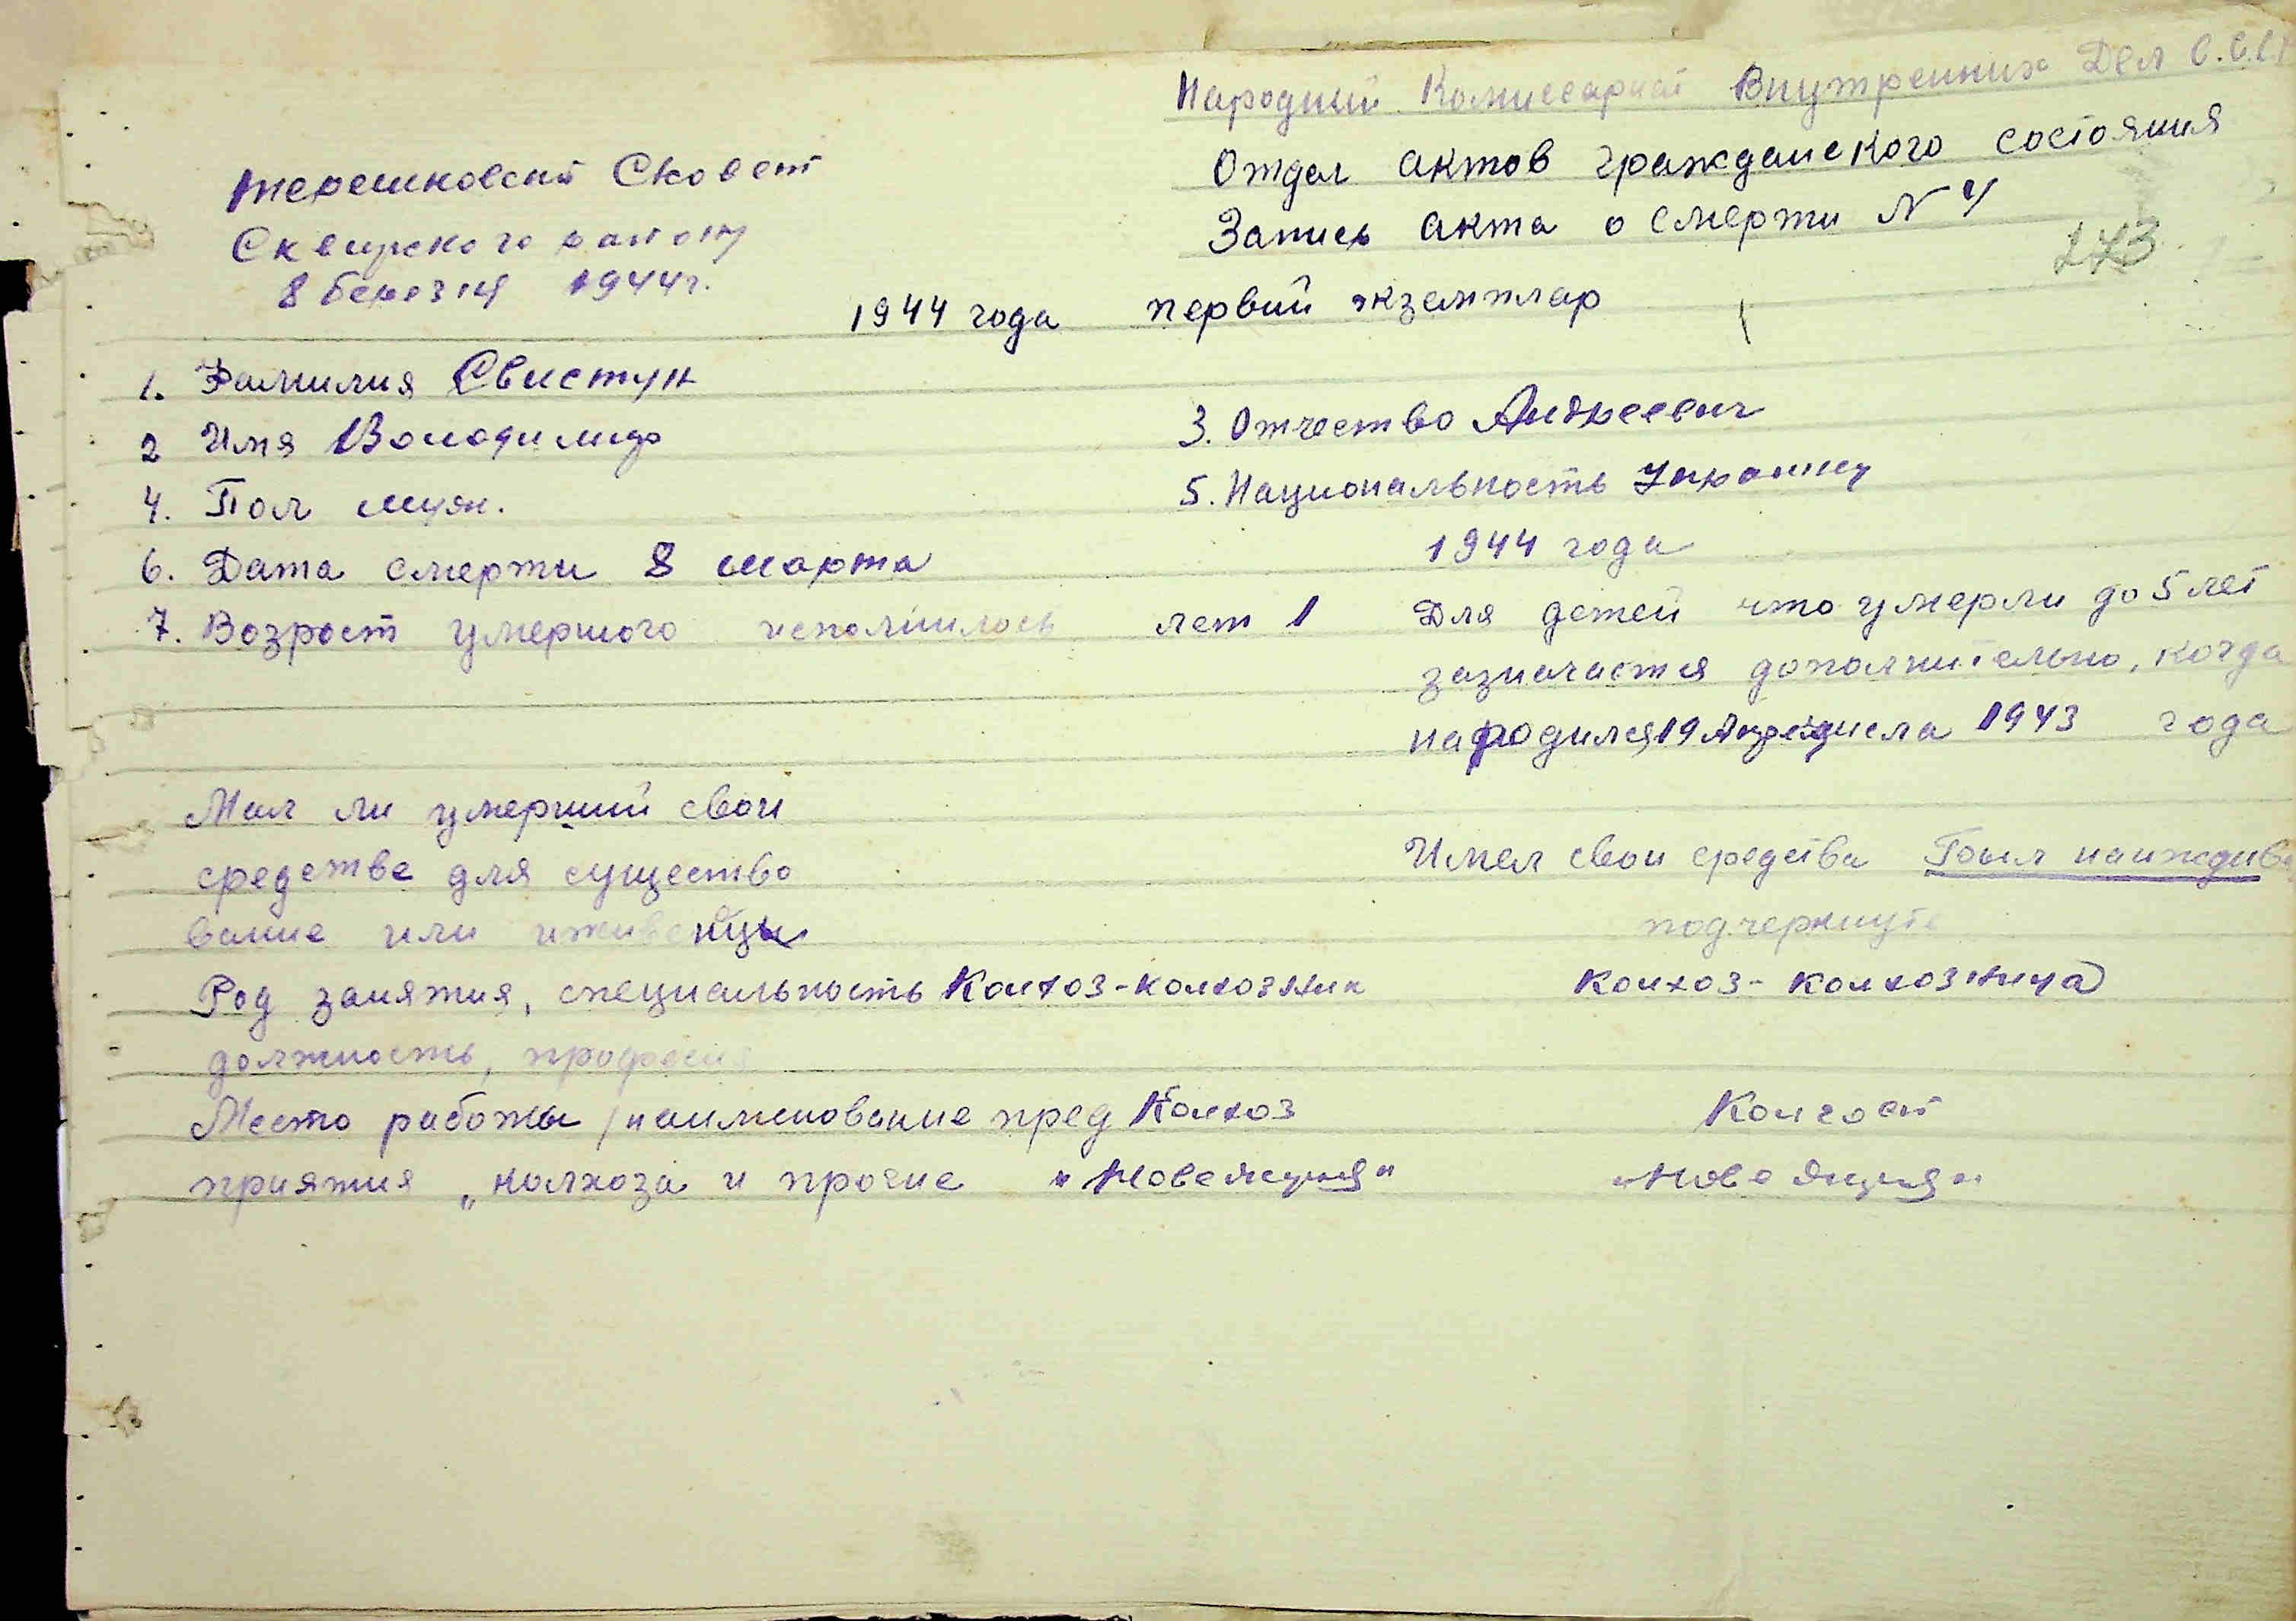 Народний Комиссариат Внутренних Дел С.С.С.Р
Отдел актов гражданского состояния
Запись акта о смерти N 4
Терешковский Сковет
Сквирского району
8 березня 1944г.
273
1944 года первий экземпляр
1. Фамилия Свистун
2 Имя Володимир
3. Отчество Андреевич
4. Пол муж.
5. Национальность Украинец
6. Дата смерти 8 марта 1944 года
7. Возраст умершого исполнилось лет 1 Для детей что умерли до 5 лет
зазначается дополнительно, когда
народился 19 числа 1943 года
Мал ли умерший свои
средстве для существо
Имел свои средства Был наиждив
вание или иживенцы
подчеркнуте
Род занятия, специальность Колхоз-колхозник Колхоз-колхозница
должность, професия
Место работы /наименование пред Колхоз
приятия „колхоза и прочие